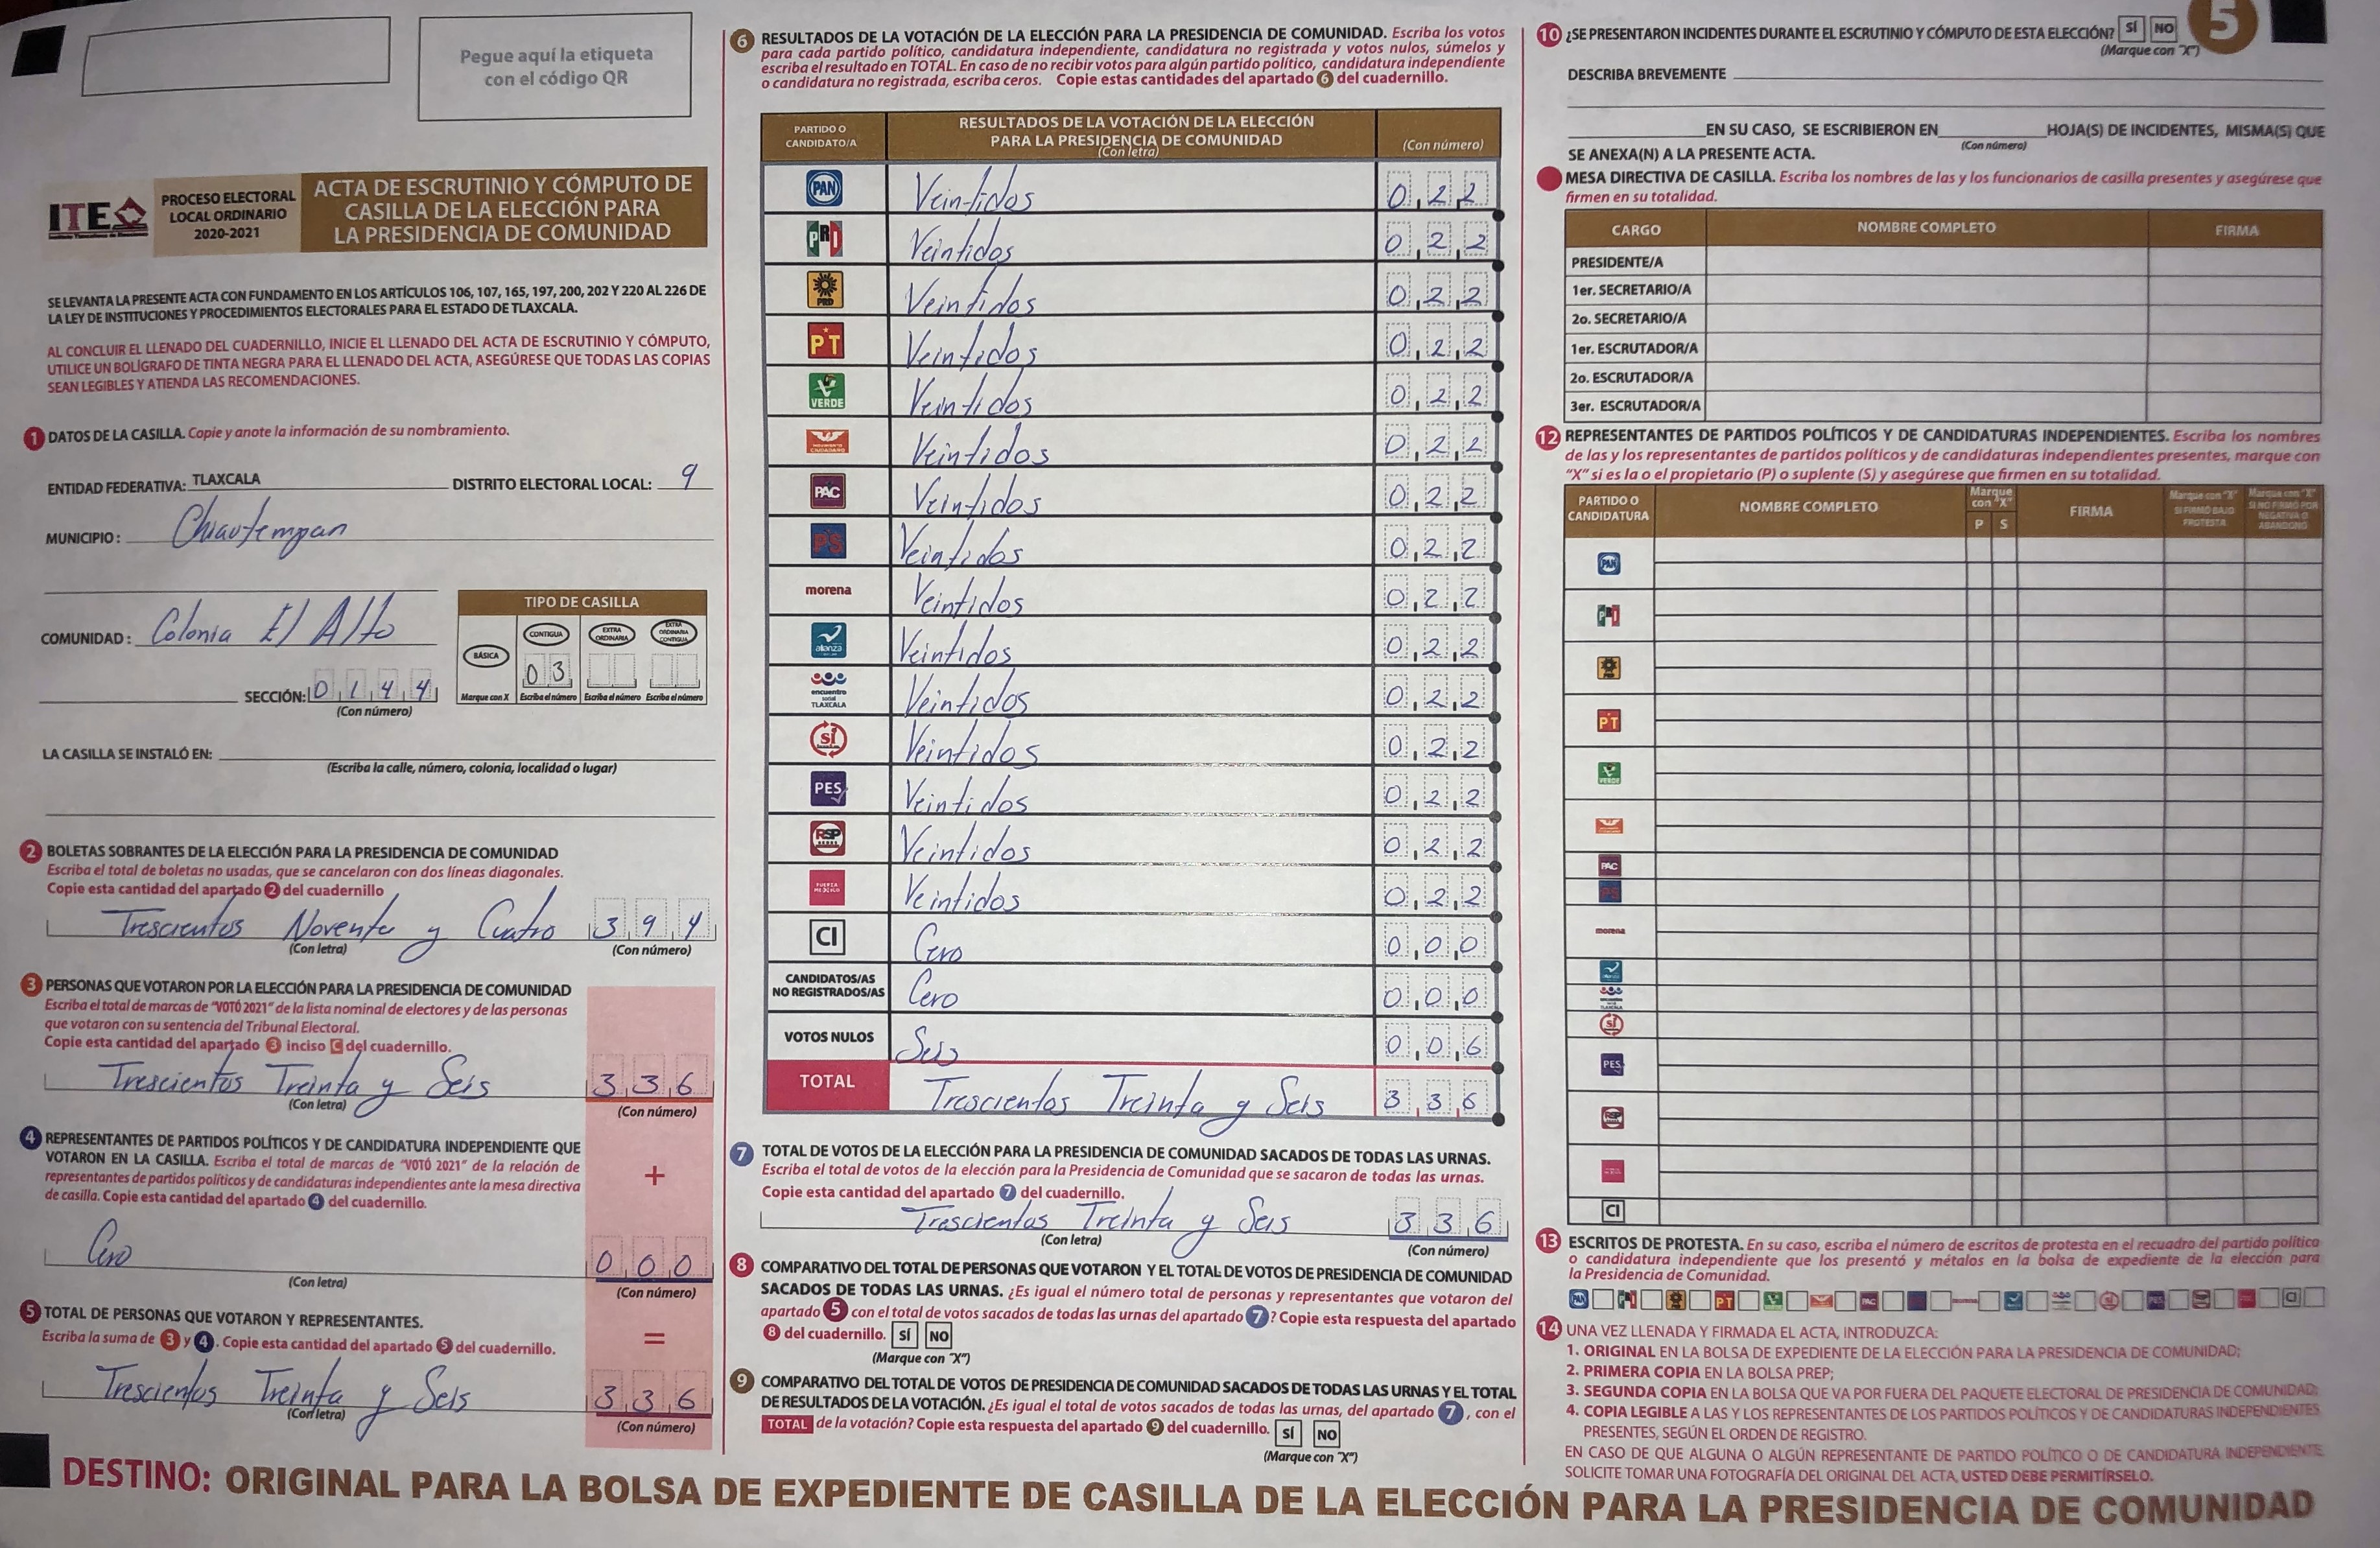 Pegue aquí la etiqueta
con el código QR
ITE
PROCESO ELECTORAL
LOCAL ORDINARIO
2020-2021
ACTA DE ESCRUTINIO Y CÓMPUTO DE
CASILLA DE LA ELECCIÓN PARA
LA PRESIDENCIA DE COMUNIDAD
SE LEVANTA LA PRESENTE ACTA CON FUNDAMENTO EN LOS ARTÍCULOS 106, 107, 165, 197, 200, 202 Y 220 AL 226 DE
LA LEY DE INSTITUCIONES Y PROCEDIMIENTOS ELECTORALES PARA EL ESTADO DE TLAXCALA.
AL CONCLUIR EL LLENADO DEL CUADERNILLO, INICIE EL LLENADO DEL ACTA DE ESCRUTINIO Y CÓMPUTO,
UTILICE UN BOLÍGRAFO DE TINTA NEGRA PARA EL LLENADO DEL ACTA, ASEGÚRESE QUE TODAS LAS COPIAS
SEAN LEGIBLES Y ATIENDA LAS RECOMENDACIONES.
1 DATOS DE LA CASILLA. Copie y anote la información de su nombramiento.
ENTIDAD FEDERATIVA: TLAXCALA DISTRITO ELECTORAL LOCAL: 9
MUNICIPIO: Chiautempan
COMUNIDAD: Colonia El Alto
SECCIÓN: 0144
(Con número)
TIPO DE CASILLA
BÁSICA CONTIGUA EXTRA ORDINARIA EXTRA ORDINARIA CONTIGUA
03
Marque con X Escriba el número Escriba el número Escriba el número
LA CASILLA SE INSTALÓ EN:
(Escriba la calle, número, colonia, localidad o lugar)
2 BOLETAS SOBRANTES DE LA ELECCIÓN PARA LA PRESIDENCIA DE COMUNIDAD
Escriba el total de boletas no usadas, que se cancelaron con dos líneas diagonales.
Copie esta cantidad del apartado 2 del cuadernillo
Trescientos Noventa y Cuatro 394
(Con letra) (Con número)
3 PERSONAS QUE VOTARON POR LA ELECCIÓN PARA LA PRESIDENCIA DE COMUNIDAD
Escriba el total de marcas de "VOTÓ 2021" de la lista nominal de electores y de las personas
que votaron con su sentencia del Tribunal Electoral.
Copie esta cantidad del apartado 3 inciso C del cuadernillo.
Trescientos Treinta y Seis 336
(Con letra) (Con número)
4 REPRESENTANTES DE PARTIDOS POLÍTICOS Y DE CANDIDATURA INDEPENDIENTE QUE
VOTARON EN LA CASILLA. Escriba el total de marcas de "VOTÓ 2021" de la relación de
representantes de partidos políticos y de candidaturas independientes ante la mesa directiva
de casilla. Copie esta cantidad del apartado 4 del cuadernillo.
+
Cero 000
(Con letra) (Con número)
5 TOTAL DE PERSONAS QUE VOTARON Y REPRESENTANTES.
Escriba la suma de 3 y 4. Copie esta cantidad del apartado 5 del cuadernillo.
=
Trescientos Treinta y Seis 336
(Con letra) (Con número)
6 RESULTADOS DE LA VOTACIÓN DE LA ELECCIÓN PARA LA PRESIDENCIA DE COMUNIDAD. Escriba los votos
para cada partido político, candidatura independiente, candidatura no registrada y votos nulos, súmelos y
escriba el resultado en TOTAL. En caso de no recibir votos para algún partido político, candidatura independiente
o candidatura no registrada, escriba ceros. Copie estas cantidades del apartado 6 del cuadernillo.
PARTIDO O
CANDIDATO/A
RESULTADOS DE LA VOTACIÓN DE LA ELECCIÓN
PARA LA PRESIDENCIA DE COMUNIDAD
(Con letra)
(Con número)
PAN Veintidos 022
PRI Veintidos 022
PRD Veintidos 022
PT Veintidos 022
VERDE Veintidos 022
MOVIMIENTO CIUDADANO Veintidos 022
PAC Veintidos 022
PS Veintidos 022
morena Veintidos 022
alianza Veintidos 022
encuentro social TLAXCALA Veintidos 022
sí Veintidos 022
PES Veintidos 022
RSP Veintidos 022
FUERZA MÉXICO Veintidos 022
CI Cero 000
CANDIDATOS/AS
NO REGISTRADOS/AS Cero 000
VOTOS NULOS Seis 006
TOTAL Trescientos Treinta y Seis 336
7 TOTAL DE VOTOS DE LA ELECCIÓN PARA LA PRESIDENCIA DE COMUNIDAD SACADOS DE TODAS LAS URNAS.
Escriba el total de votos de la elección para la Presidencia de Comunidad que se sacaron de todas las urnas.
Copie esta cantidad del apartado 7 del cuadernillo.
Trescientos Treinta y Seis 336
(Con letra) (Con número)
8 COMPARATIVO DEL TOTAL DE PERSONAS QUE VOTARON Y EL TOTAL DE VOTOS DE PRESIDENCIA DE COMUNIDAD
SACADOS DE TODAS LAS URNAS. ¿Es igual el número total de personas y representantes que votaron del
apartado 5 con el total de votos sacados de todas las urnas del apartado 7? Copie esta respuesta del apartado
8 del cuadernillo. SÍ NO
(Marque con "X")
9 COMPARATIVO DEL TOTAL DE VOTOS DE PRESIDENCIA DE COMUNIDAD SACADOS DE TODAS LAS URNAS Y EL TOTAL
DE RESULTADOS DE LA VOTACIÓN. ¿Es igual el total de votos sacados de todas las urnas, del apartado 7, con el
TOTAL de la votación? Copie esta respuesta del apartado 9 del cuadernillo. SÍ NO
(Marque con "X")
5
10 ¿SE PRESENTARON INCIDENTES DURANTE EL ESCRUTINIO Y CÓMPUTO DE ESTA ELECCIÓN? SÍ NO
(Marque con "X")
DESCRIBA BREVEMENTE
EN SU CASO, SE ESCRIBIERON EN HOJA(S) DE INCIDENTES, MISMA(S) QUE
(Con número)
SE ANEXA(N) A LA PRESENTE ACTA.
MESA DIRECTIVA DE CASILLA. Escriba los nombres de las y los funcionarios de casilla presentes y asegúrese que
firmen en su totalidad.
CARGO NOMBRE COMPLETO FIRMA
PRESIDENTE/A
1er. SECRETARIO/A
2o. SECRETARIO/A
1er. ESCRUTADOR/A
2o. ESCRUTADOR/A
3er. ESCRUTADOR/A
12 REPRESENTANTES DE PARTIDOS POLÍTICOS Y DE CANDIDATURAS INDEPENDIENTES. Escriba los nombres
de las y los representantes de partidos políticos y de candidaturas independientes presentes, marque con
"X" si es la o el propietario (P) o suplente (S) y asegúrese que firmen en su totalidad.
PARTIDO O
CANDIDATURA
NOMBRE COMPLETO
Marque
con "X"
P S
FIRMA
Marque con "X"
SI FIRMÓ BAJO
PROTESTA
Marque con "X"
SI NO FIRMÓ POR
NEGATIVA O
ABANDONO
PAN
PRI
PRD
PT
VERDE
PAC
PS
morena
sí
PES
RSP
CI
13 ESCRITOS DE PROTESTA. En su caso, escriba el número de escritos de protesta en el recuadro del partido político
o candidatura independiente que los presentó y métalos en la bolsa de expediente de la elección para
la Presidencia de Comunidad.
14 UNA VEZ LLENADA Y FIRMADA EL ACTA, INTRODUZCA:
1. ORIGINAL EN LA BOLSA DE EXPEDIENTE DE LA ELECCIÓN PARA LA PRESIDENCIA DE COMUNIDAD;
2. PRIMERA COPIA EN LA BOLSA PREP;
3. SEGUNDA COPIA EN LA BOLSA QUE VA POR FUERA DEL PAQUETE ELECTORAL DE PRESIDENCIA DE COMUNIDAD;
4. COPIA LEGIBLE A LAS Y LOS REPRESENTANTES DE LOS PARTIDOS POLÍTICOS Y DE CANDIDATURAS INDEPENDIENTES
PRESENTES, SEGÚN EL ORDEN DE REGISTRO.
EN CASO DE QUE ALGUNA O ALGÚN REPRESENTANTE DE PARTIDO POLÍTICO O DE CANDIDATURA INDEPENDIENTE
SOLICITE TOMAR UNA FOTOGRAFÍA DEL ORIGINAL DEL ACTA, USTED DEBE PERMITÍRSELO.
DESTINO: ORIGINAL PARA LA BOLSA DE EXPEDIENTE DE CASILLA DE LA ELECCIÓN PARA LA PRESIDENCIA DE COMUNIDAD